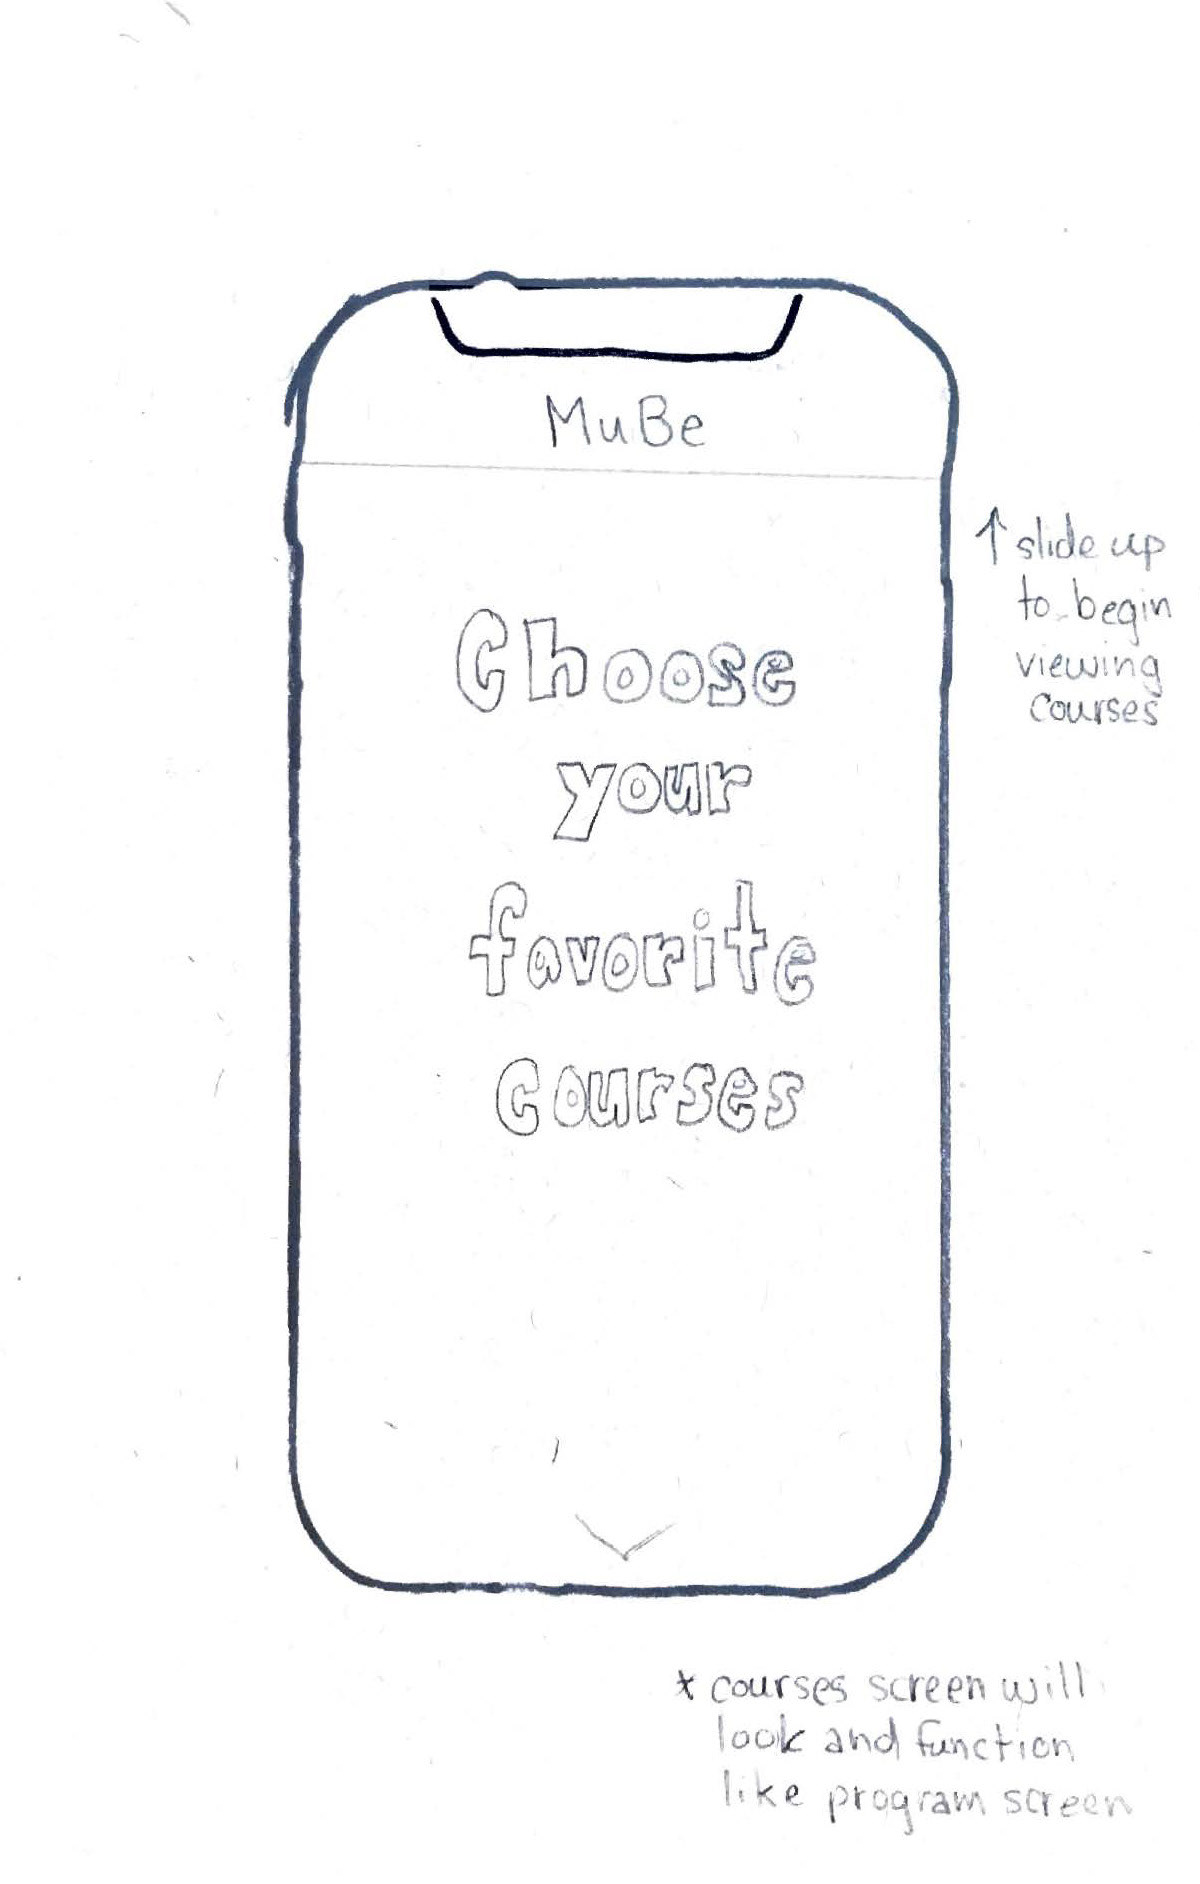 MuBe
Choose
your
favorite
courses
↑ slide up
to begin
viewing
courses
* courses screen will
look and function
like program screen